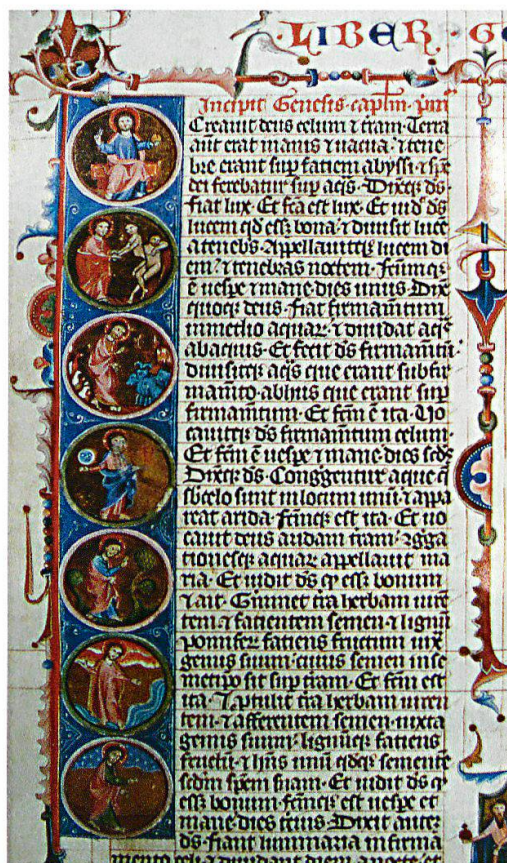 LIBER · GE
Incipit Genesis · caplm · pm
Creauit deus celum ⁊ tram · Terra
aut erat inanis ⁊ uacua · ⁊ tene
bre erant sup fatiem abyssi · ⁊ sps
dei ferebatur sup aq̄s · Dixitq; ds ·
fiat lux · Et fca est lux · Et uid' ds
lucem qd ess; bona · ⁊ diuisit luce
a tenebs · Appellauitq; lucem di
em · ⁊ tenebras noctem · fcumq;
ē uespe ⁊ mane dies unus · Dix
quoq; deus · fiat firmamtum
in medio aquar · ⁊ diuidat aq̄s
ab aquis · Et fecit ds firmamtū ·
diuisitq; aq̄s que erant sub fir
mamto · ab his que erant sup
firmamtum · Et fcm ē ita · Uo
cauitq; ds firmamtum celum ·
Et fcm ē uespe ⁊ mane dies scds
Dixitq; ds · Conggentur aque q̄
sb celo sunt in locum unū ⁊ appa
reat arida · fcmq; est ita · Et uo
cauit deus aridam tram · ⁊gga
tionesq; aquar appellauit ma
ria · Et uidit ds qp ess; bonum
⁊ ait · Gminet tra herbam uirē
tem ⁊ fatientem semen · ⁊ lignū
pomifer fatiens fructum iux
genus suum · cuius semen in se
metipo sit sup tram · Et fcm est
ita · ⁊ ptulit tra herbam uiren
tem · ⁊ afferentem semen · iuxta
genus suum · lignumq; fatiens
fructū · ⁊ hns unū qdq; semente
scdm spēm suam · Et uidit ds qp
ess; bonum · fcmq; est uespe et
mane dies tcius · Dixit autez
ds · fiant luminaria in firma
mento celi · ⁊ diuidant diem